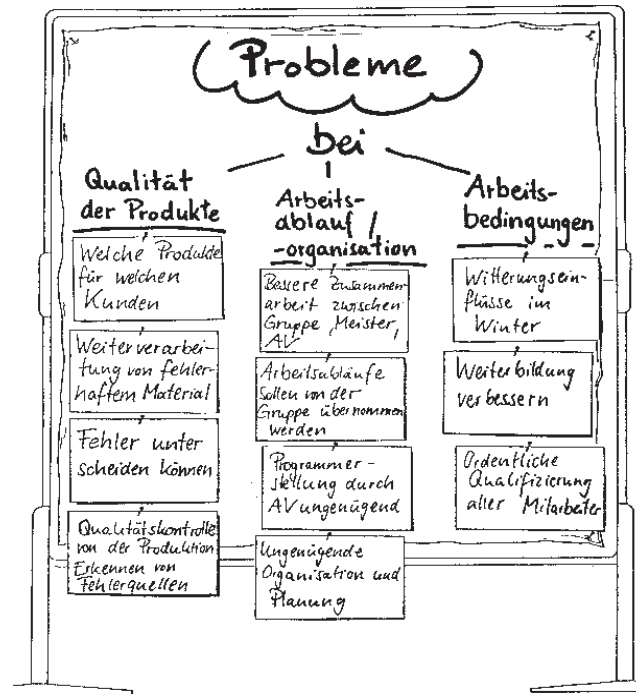 Probleme
bei
Qualität
der Produkte
Welche Produkte
für welchen
Kunden
Weiterverarbei-
tung von fehler-
haftem Material
Fehler unter
scheiden können
Qualitätskontrolle
von der Produktion
Erkennen von
Fehlerquellen
Arbeits-
ablauf /
-organisation
Bessere Zusammen
arbeit zwischen
Gruppe, Meister,
AV
Arbeitsabläufe
sollen von der
Gruppe übernommen
werden
Programmer-
stellung durch
AV ungenügend
Ungenügende
Organisation und
Planung
Arbeits-
bedingungen
Witterungsein-
flüsse im
Winter
Weiterbildung
verbessern
Ordentliche
Qualifizierung
aller Mitarbeiter